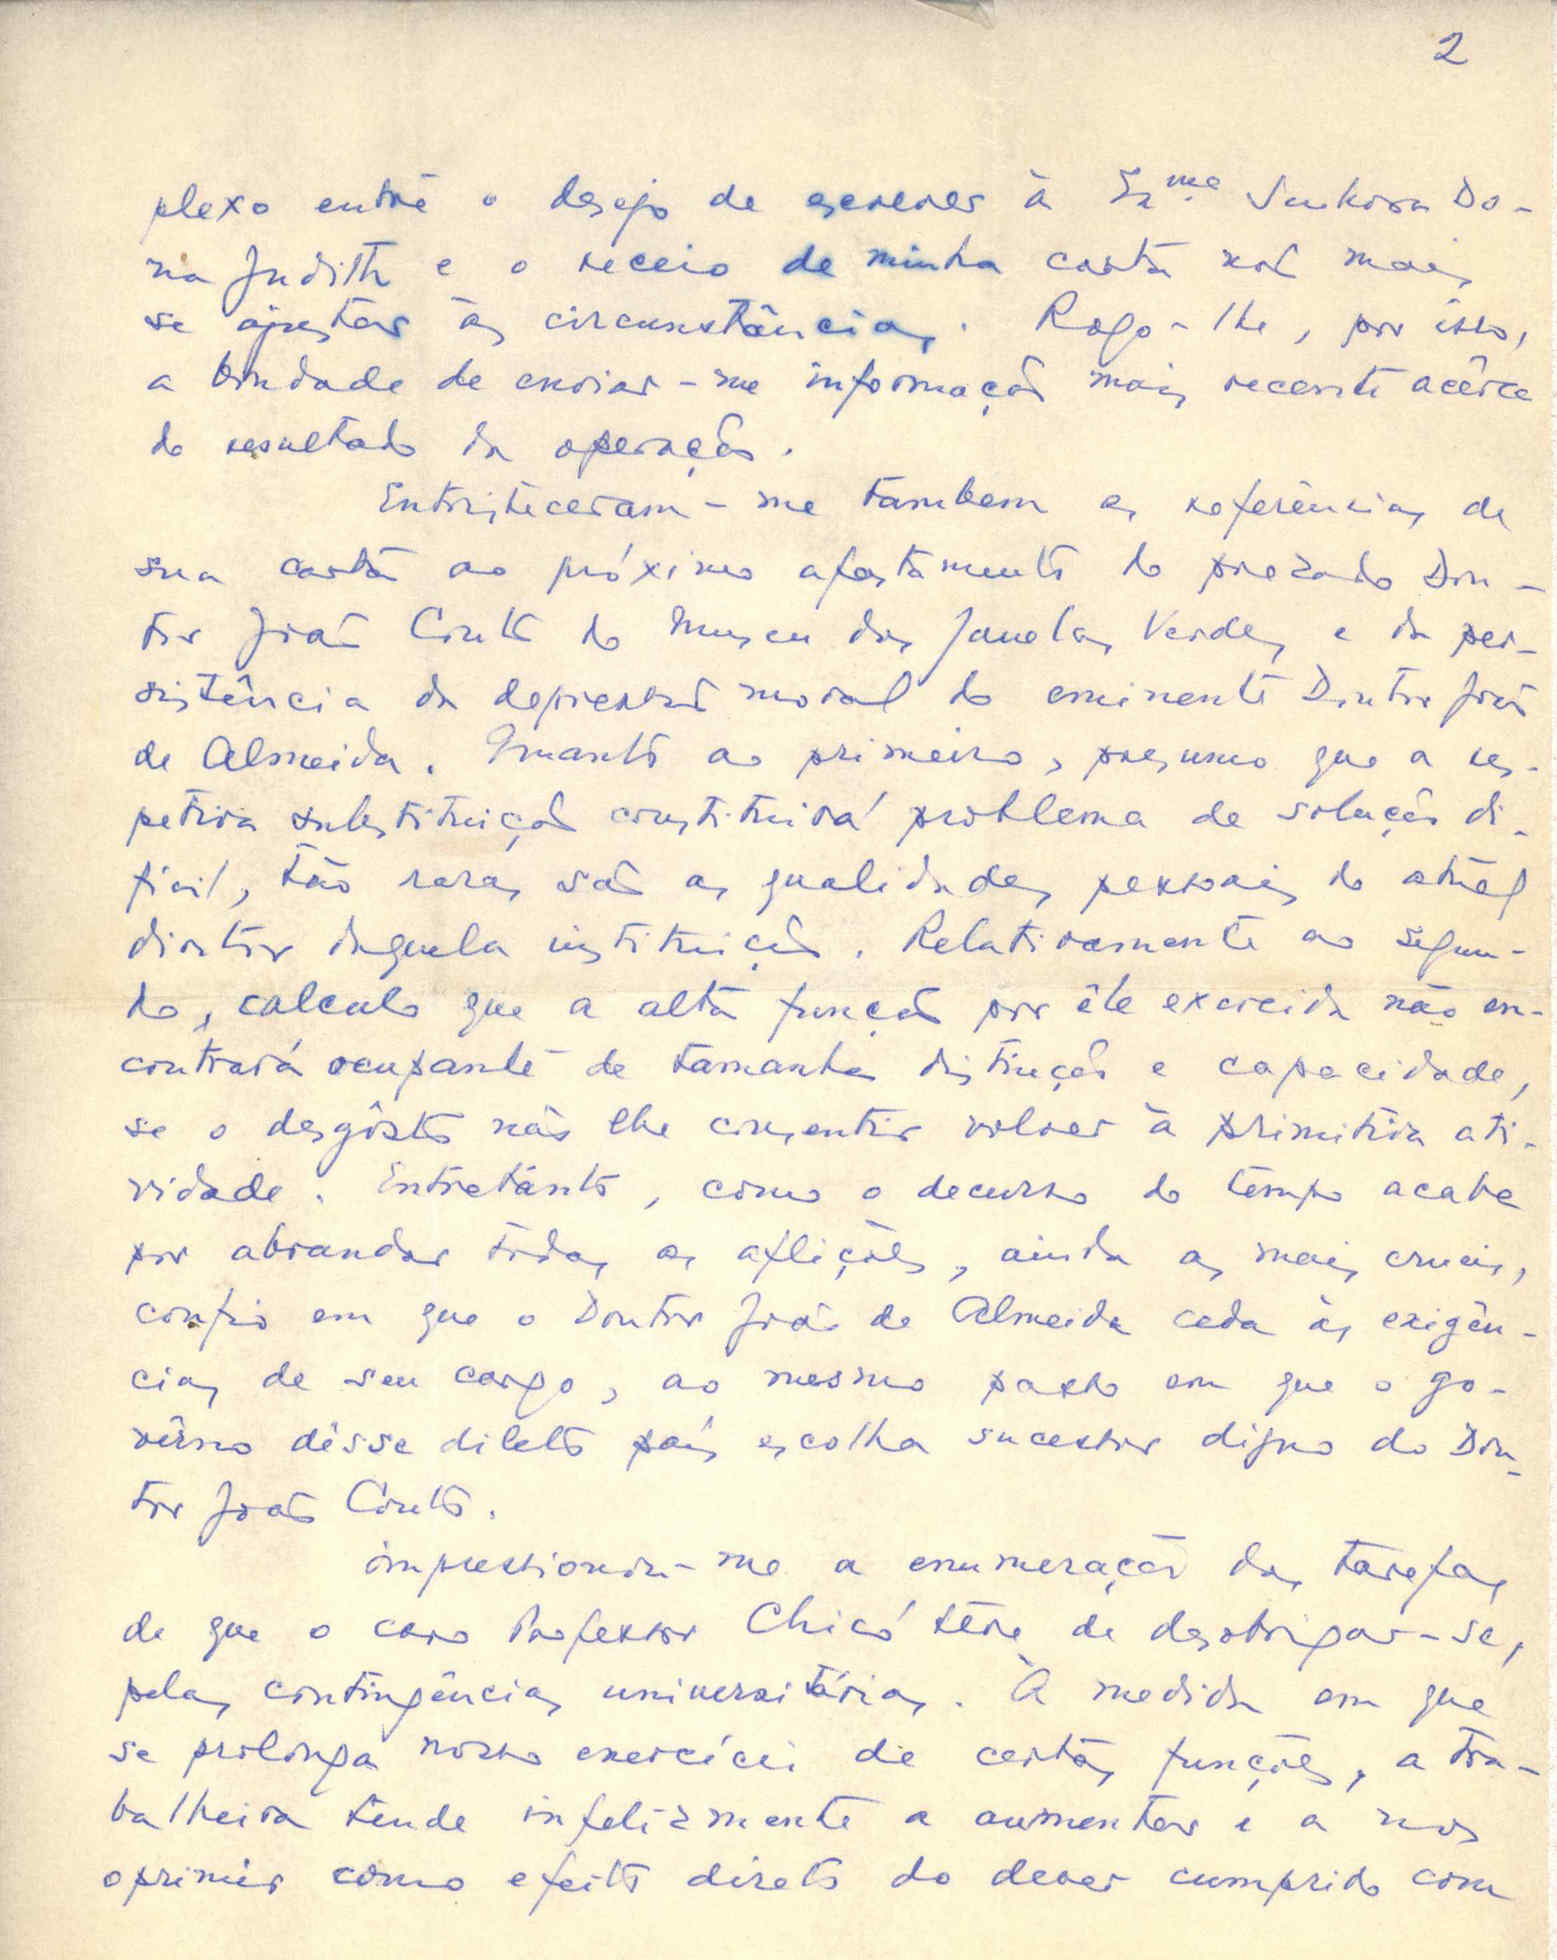 2
plexo entre o desejo de escrever à Exma. Senhora Do-
na Judith e o receio de minha carta não mais
se ajustar às circunstâncias. Rogo-lhe, por isso,
a bondade de enviar-me informação mais recente acêrca
do resultado da operação.
Entristeceram-me tambem as referências de
sua carta ao próximo afastamento do prezado Dou-
tor João Couto do Museu das Janelas Verdes e da per-
sistência da depressão moral do eminente Doutor João
de Almeida. Quanto ao primeiro, presumo que a res-
petiva substituição constituirá problema de solução di-
fícil, tão raras são as qualidades pessoais do atual
diretor daquela instituição. Relativamente ao segun-
do, calculo que a alta função por êle exercida não en-
contrará ocupante de tamanha distinção e capacidade,
se o desgôsto não lhe consentir volver à primitiva ati-
vidade. Entretanto, como o decurso do tempo acaba
por abrandar todas as aflições, ainda as mais cruéis,
confio em que o Doutor João de Almeida ceda às exigên-
cias de seu cargo, ao mesmo passo em que o go-
vêrno dêsse dileto país escolha sucessor digno do Dou-
tor João Couto.
Impressionou-me a enumeração das tarefas
de que o caro Professor Chicó teve de desobrigar-se,
pelas contingências universitárias. À medida em que
se prolonga nosso exercício de certas funções, a tra-
balheira tende infelizmente a aumentar e a nos
oprimir como efeito direto do dever cumprido com